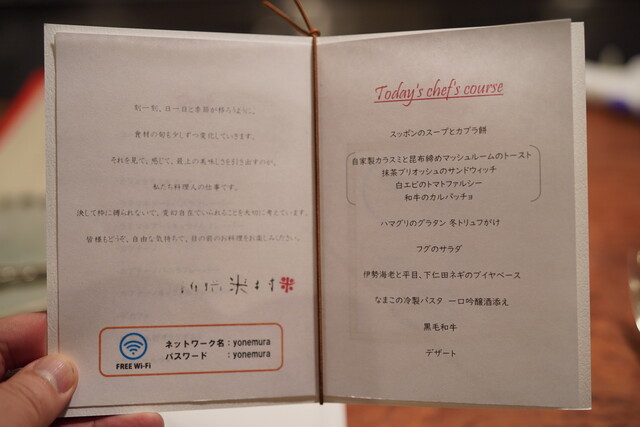 刻一刻、日一日と季節が移ろうように、
食材の旬も少しずつ変化していきます。
それを見て、感じて、最上の美味しさを引き出すのが、
私たち料理人の仕事です。
決して枠に縛られないで、変幻自在でいられることを大切に考えています。
皆様もどうぞ、自由な気持ちで、目の前のお料理をお楽しみください。
米村
FREE Wi-Fi
ネットワーク名：yonemura
パスワード ：yonemura
Today's chef's course
スッポンのスープとカブラ餅
自家製カラスミと昆布締めマッシュルームのトースト
抹茶ブリオッシュのサンドウィッチ
白エビのトマトファルシー
和牛のカルパッチョ
ハマグリのグラタン 冬トリュフがけ
フグのサラダ
伊勢海老と平目、下仁田ネギのブイヤベース
なまこの冷製パスタ 一口吟醸酒添え
黒毛和牛
デザート